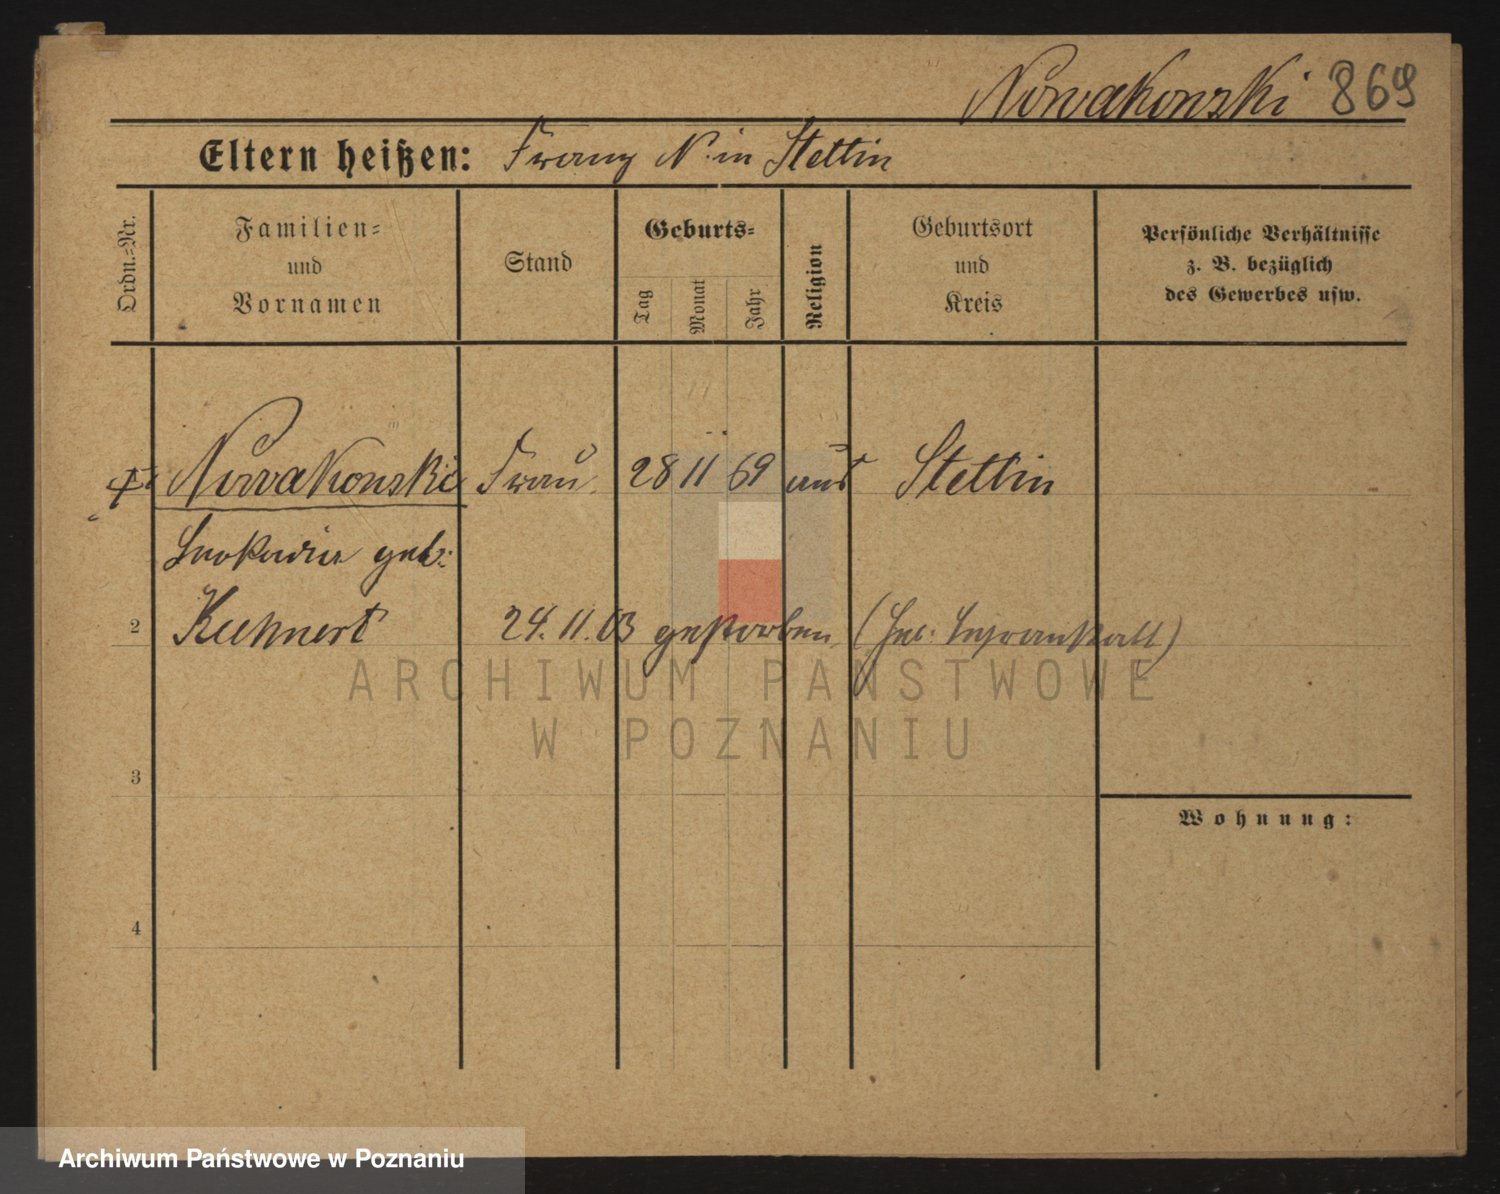 Nowakowski 869
Eltern heißen: Franz N. in Stettin
Ordn.=Nr.
Familien=
und
Vornamen
Stand
Geburts=
Tag
Monat
Jahr
Religion
Geburtsort
und
Kreis
Persönliche Verhältnisse
z. B. bezüglich
des Gewerbes usw.
Nowakowski Frau 28 11 69 Stettin
Leokadia geb:
2 Kuhnert 24. 11. 03 gestorben
3
4
Wohnung:
ARCHIWUM PAŃSTWOWE
W POZNANIU
Archiwum Państwowe w Poznaniu